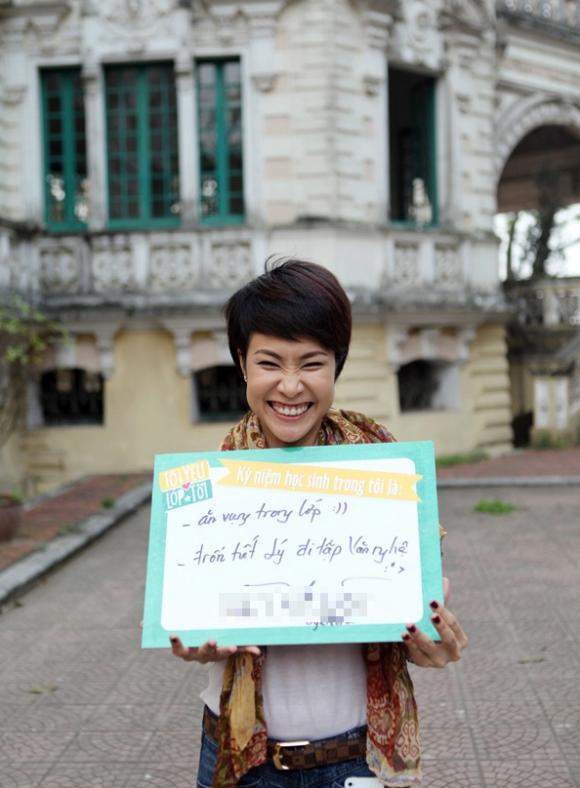 TÔI YÊU
LỚP TÔI
Kỷ niệm học sinh trong tôi là:
- ăn vụng trong lớp :))
- trốn tiết Lý đi tập Văn nghệ
:">